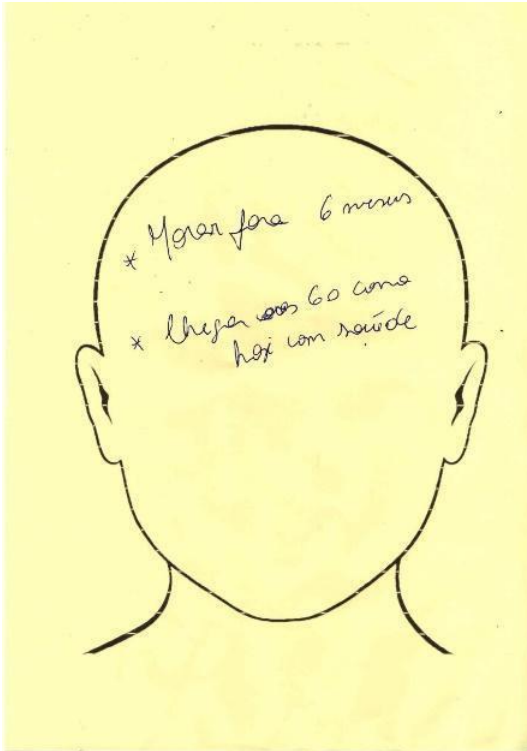 * Morar fora 6 meses
* Chegar aos 60 como
hoje com saúde